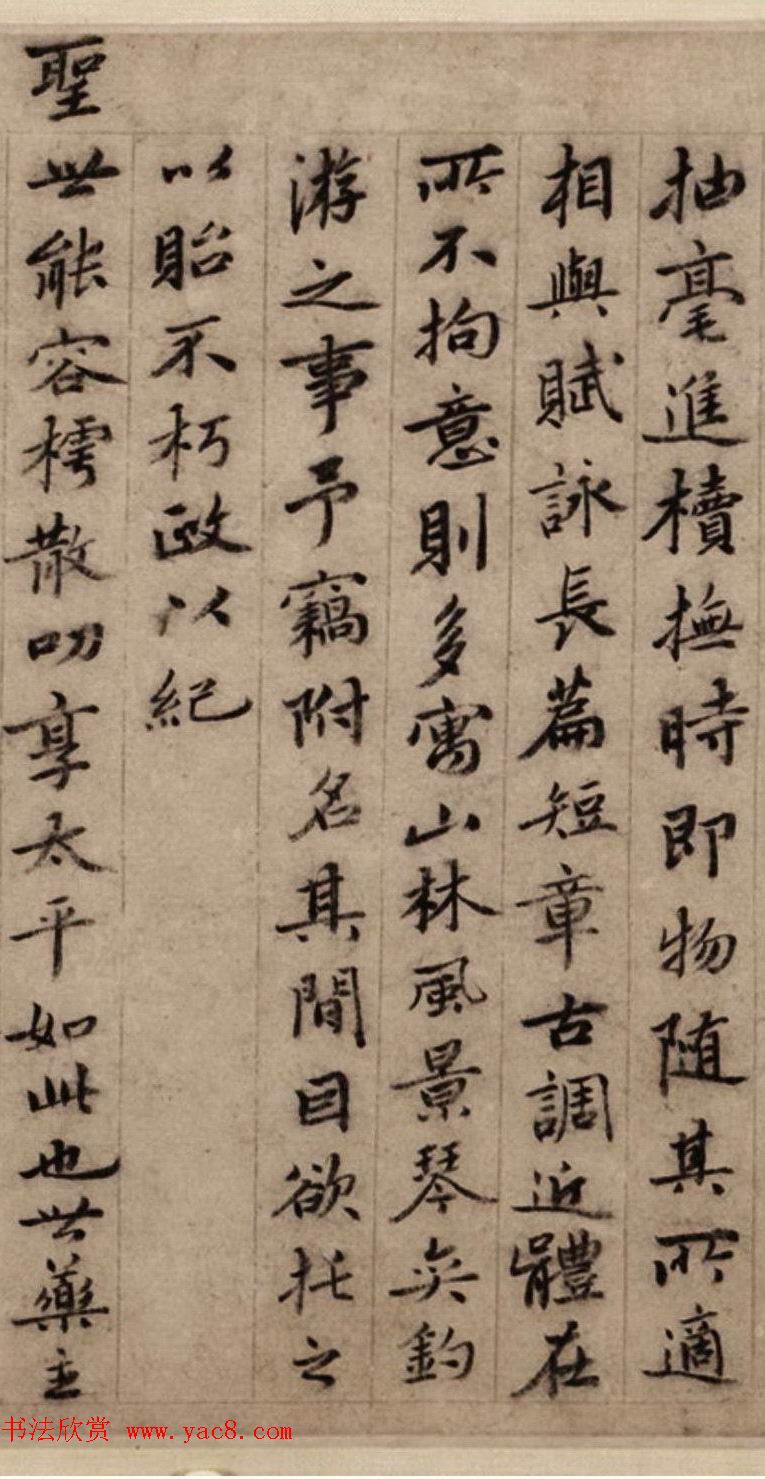 抽毫進牘撫時即物随其所適
相與賦詠長篇短章古調近體在
所不拘意則多寓山林風景琴奕釣
游之事予竊附名其間因欲托之
以貽不朽政以紀
聖世能容樗散叨享太平如此也世藥主
书法欣赏 www.yac8.com